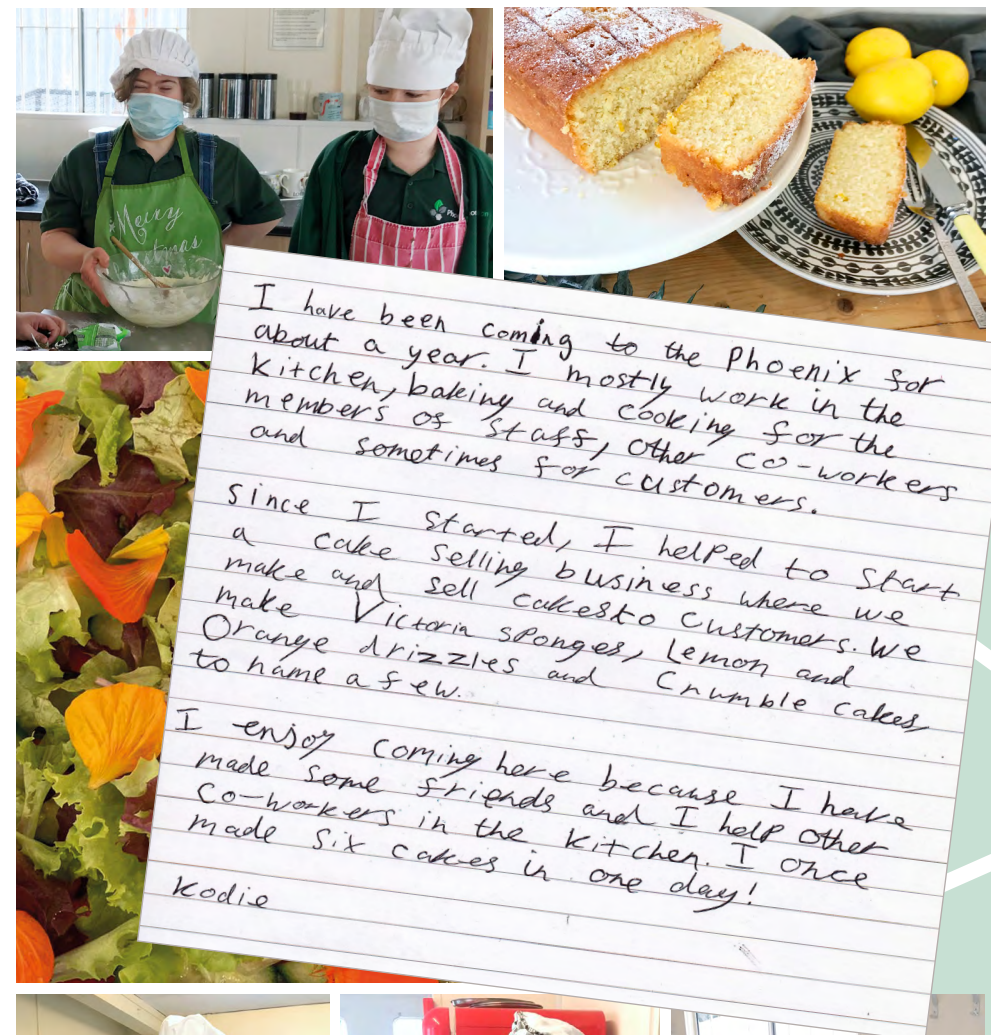 Merry
I have been coming to the Phoenix for
about a year. I mostly work in the
kitchen, baking and cooking for the
members of staff, other co-workers
and sometimes for customers.
since I started, I helped to start
a cake selling business where we
make and sell cakes to customers. We
make Victoria sponges, Lemon and
Orange drizzles and Crumble cakes,
to name a few.
I enjoy coming here because I have
made some friends and I help other
co-workers in the kitchen. I once
made six cakes in one day!
Kodie